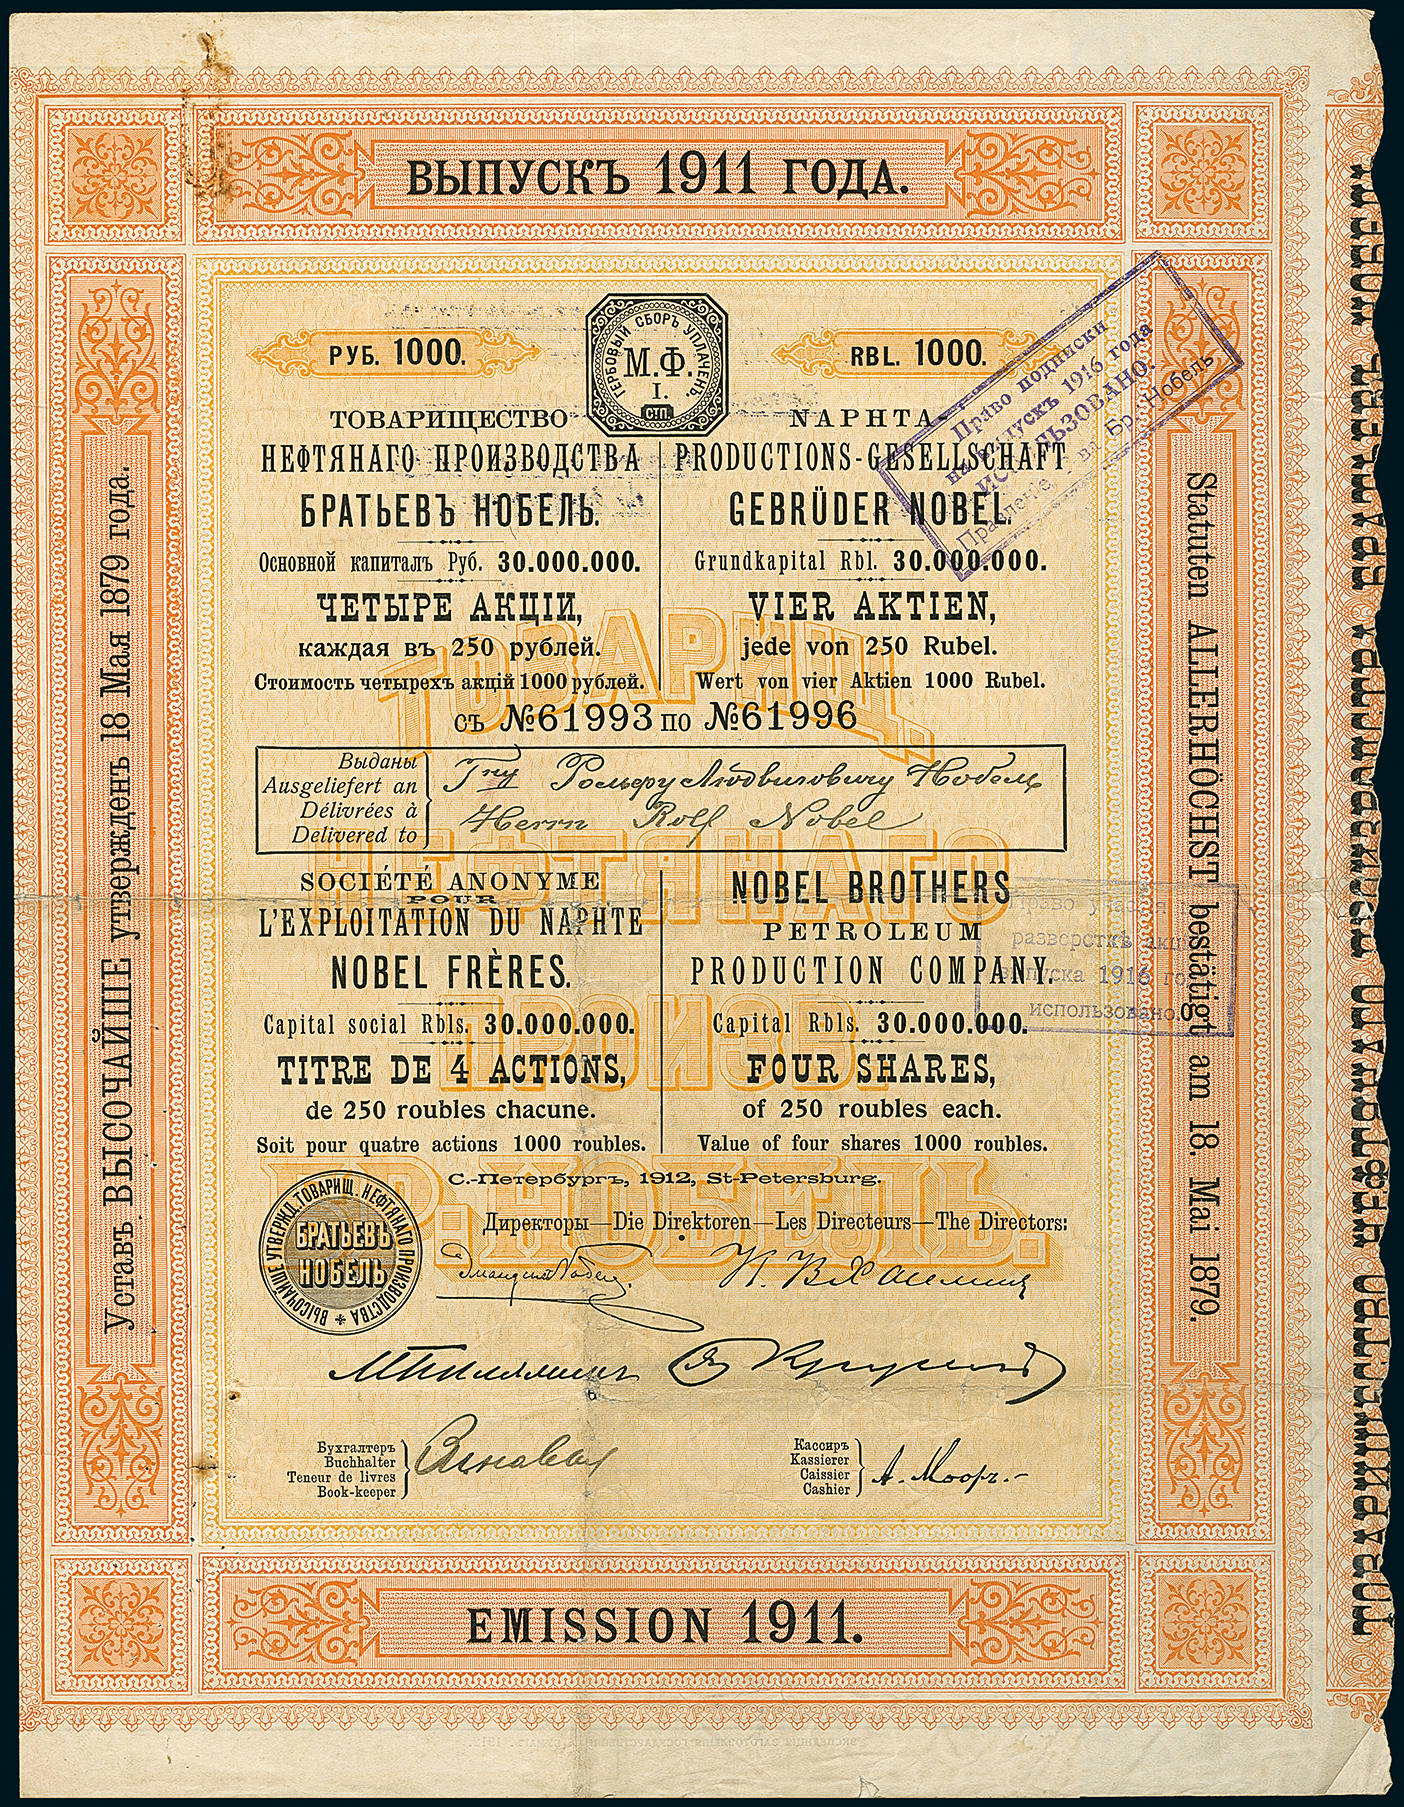 ВЫПУСКЪ 1911 ГОДА.
РУБ. 1000.
ГЕРБОВЫЙ СБОРЪ УПЛАЧЕНЪ.
М.Ф.
I.
СТП.
RBL. 1000.
ТОВАРИЩЕСТВО
НЕФТЯНАГО ПРОИЗВОДСТВА
БРАТЬЕВЪ НОБЕЛЬ.
Основной капиталъ Руб. 30.000.000.
ЧЕТЫРЕ АКЦІИ,
каждая въ 250 рублей.
Стоимость четырехъ акцій 1000 рублей.
NAPHTA-
PRODUCTIONS-GESELLSCHAFT
GEBRÜDER NOBEL.
Grundkapital Rbl. 30.000.000.
VIER AKTIEN,
jede von 250 Rubel.
Wert von vier Aktien 1000 Rubel.
Право подписки
на выпускъ 1916 года
ИСПОЛЬЗОВАНО.
Правленіе Бр. Нобель
съ №61993 по №61996
Выданы
Ausgeliefert an
Délivrées à
Delivered to
Гну Рольфу Людвиговичу Нобель
Herrn Rolf Nobel
SOCIÉTÉ ANONYME
POUR
L'EXPLOITATION DU NAPHTE
NOBEL FRÈRES.
Capital social Rbls. 30.000.000.
TITRE DE 4 ACTIONS,
de 250 roubles chacune.
Soit pour quatre actions 1000 roubles.
NOBEL BROTHERS
PETROLEUM
PRODUCTION COMPANY.
Capital Rbls. 30.000.000.
FOUR SHARES,
of 250 roubles each.
Value of four shares 1000 roubles.
Право участія
разверсткѣ акц
выпуска 1916 го
использовано.
С.-Петербургъ, 1912, St-Petersburg.
Директоры—Die Direktoren—Les Directeurs—The Directors:
ВЫСОЧАЙШЕ УТВЕРЖД. ТОВАРИЩ. НЕФТЯНАГО ПРОИЗВОДСТВА
БРАТЬЕВЪ
НОБЕЛЬ
Эмануилъ Нобель
Бухгалтеръ
Buchhalter
Teneur de livres
Book-keeper
Кассиръ
Kassierer
Caissier
Cashier
А. Мооръ.
EMISSION 1911.
Уставъ ВЫСОЧАЙШЕ утвержденъ 18 Мая 1879 года.
Statuten ALLERHÖCHST bestätigt am 18. Mai 1879.
ТОВАРИЩ.
НЕФТЯНАГО
ПРОИЗВ.
БР. НОБЕЛЬ.
ТОВАРИЩЕСТВО НЕФТЯНАГО ПРОИЗВОДСТВА БРАТЬЕВЪ НОБЕЛЬ